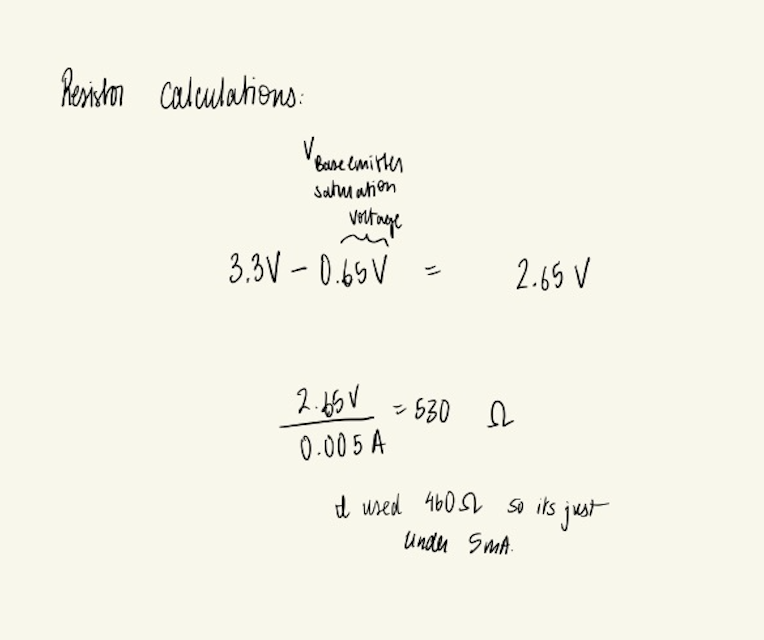 Resistor Calculations:
V Base emitter
saturation
voltage
3.3V - 0.65V = 2.65 V
2.65V
= 530 Ω
0.005A
I used 460Ω so its just
under 5mA.